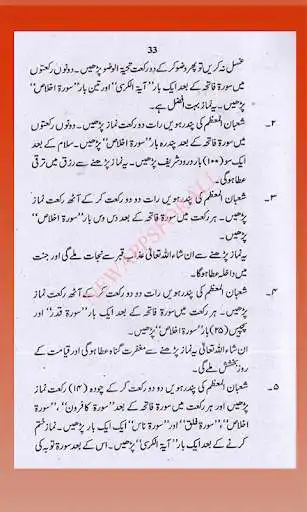 33
غسل نہ کریں تو پھر وضو کر کے دو رکعت تحیۃ الوضو پڑھیں۔ دونوں رکعتوں
میں سورۃ فاتحہ کے بعد ایک بار ''آیۃ الکرسی'' اور تین بار ''سورۃ اخلاص''
پڑھیں۔ یہ نماز بہت افضل ہے۔
۲۔ شعبان المعظم کی پندرہویں رات دو رکعت نماز پڑھیں۔ دونوں رکعتوں
میں سورۃ فاتحہ کے بعد پندرہ بار ''سورۃ اخلاص'' پڑھیں۔ سلام کے بعد
ایک سو (۱۰۰) بار درود شریف پڑھیں۔ یہ نماز پڑھنے سے رزق میں ترقی
عطا ہوگی۔
۳۔ شعبان المعظم کی پندرہویں رات دو دو رکعت کر کے آٹھ رکعت نماز
پڑھیں۔ ہر رکعت میں سورۃ فاتحہ کے بعد دس دس بار ''سورۃ اخلاص''
پڑھیں۔
یہ نماز پڑھنے سے ان شاء اللہ تعالیٰ عذاب قبر سے نجات ملے گی اور جنت
میں داخلہ عطا ہوگا۔
۴۔ شعبان المعظم کی پندرہویں رات دو دو رکعت کر کے آٹھ رکعت نماز
پڑھیں۔ ہر رکعت میں سورۃ فاتحہ کے بعد ایک بار ''سورۃ قدر'' اور
پچیس (۲۵) بار ''سورۃ اخلاص'' پڑھیں۔
ان شاء اللہ تعالیٰ یہ نماز پڑھنے سے مغفرت گناہ عطا ہوگی اور قیامت کے
روز بخشش ملے گی۔
۵۔ شعبان المعظم کی پندرہویں دو دو رکعت کر کے چودہ (۱۴) رکعت نماز
پڑھیں اور ہر رکعت میں سورۃ فاتحہ کے بعد ''سورۃ کافرون''، ''سورۃ
اخلاص''، ''سورۃ فلق'' اور ''سورۃ ناس'' ایک ایک بار پڑھیں۔ نماز ختم
کرنے کے بعد ایک بار ''آیۃ الکرسی'' پڑھیں۔ اس کے بعد سورۃ توبہ کی